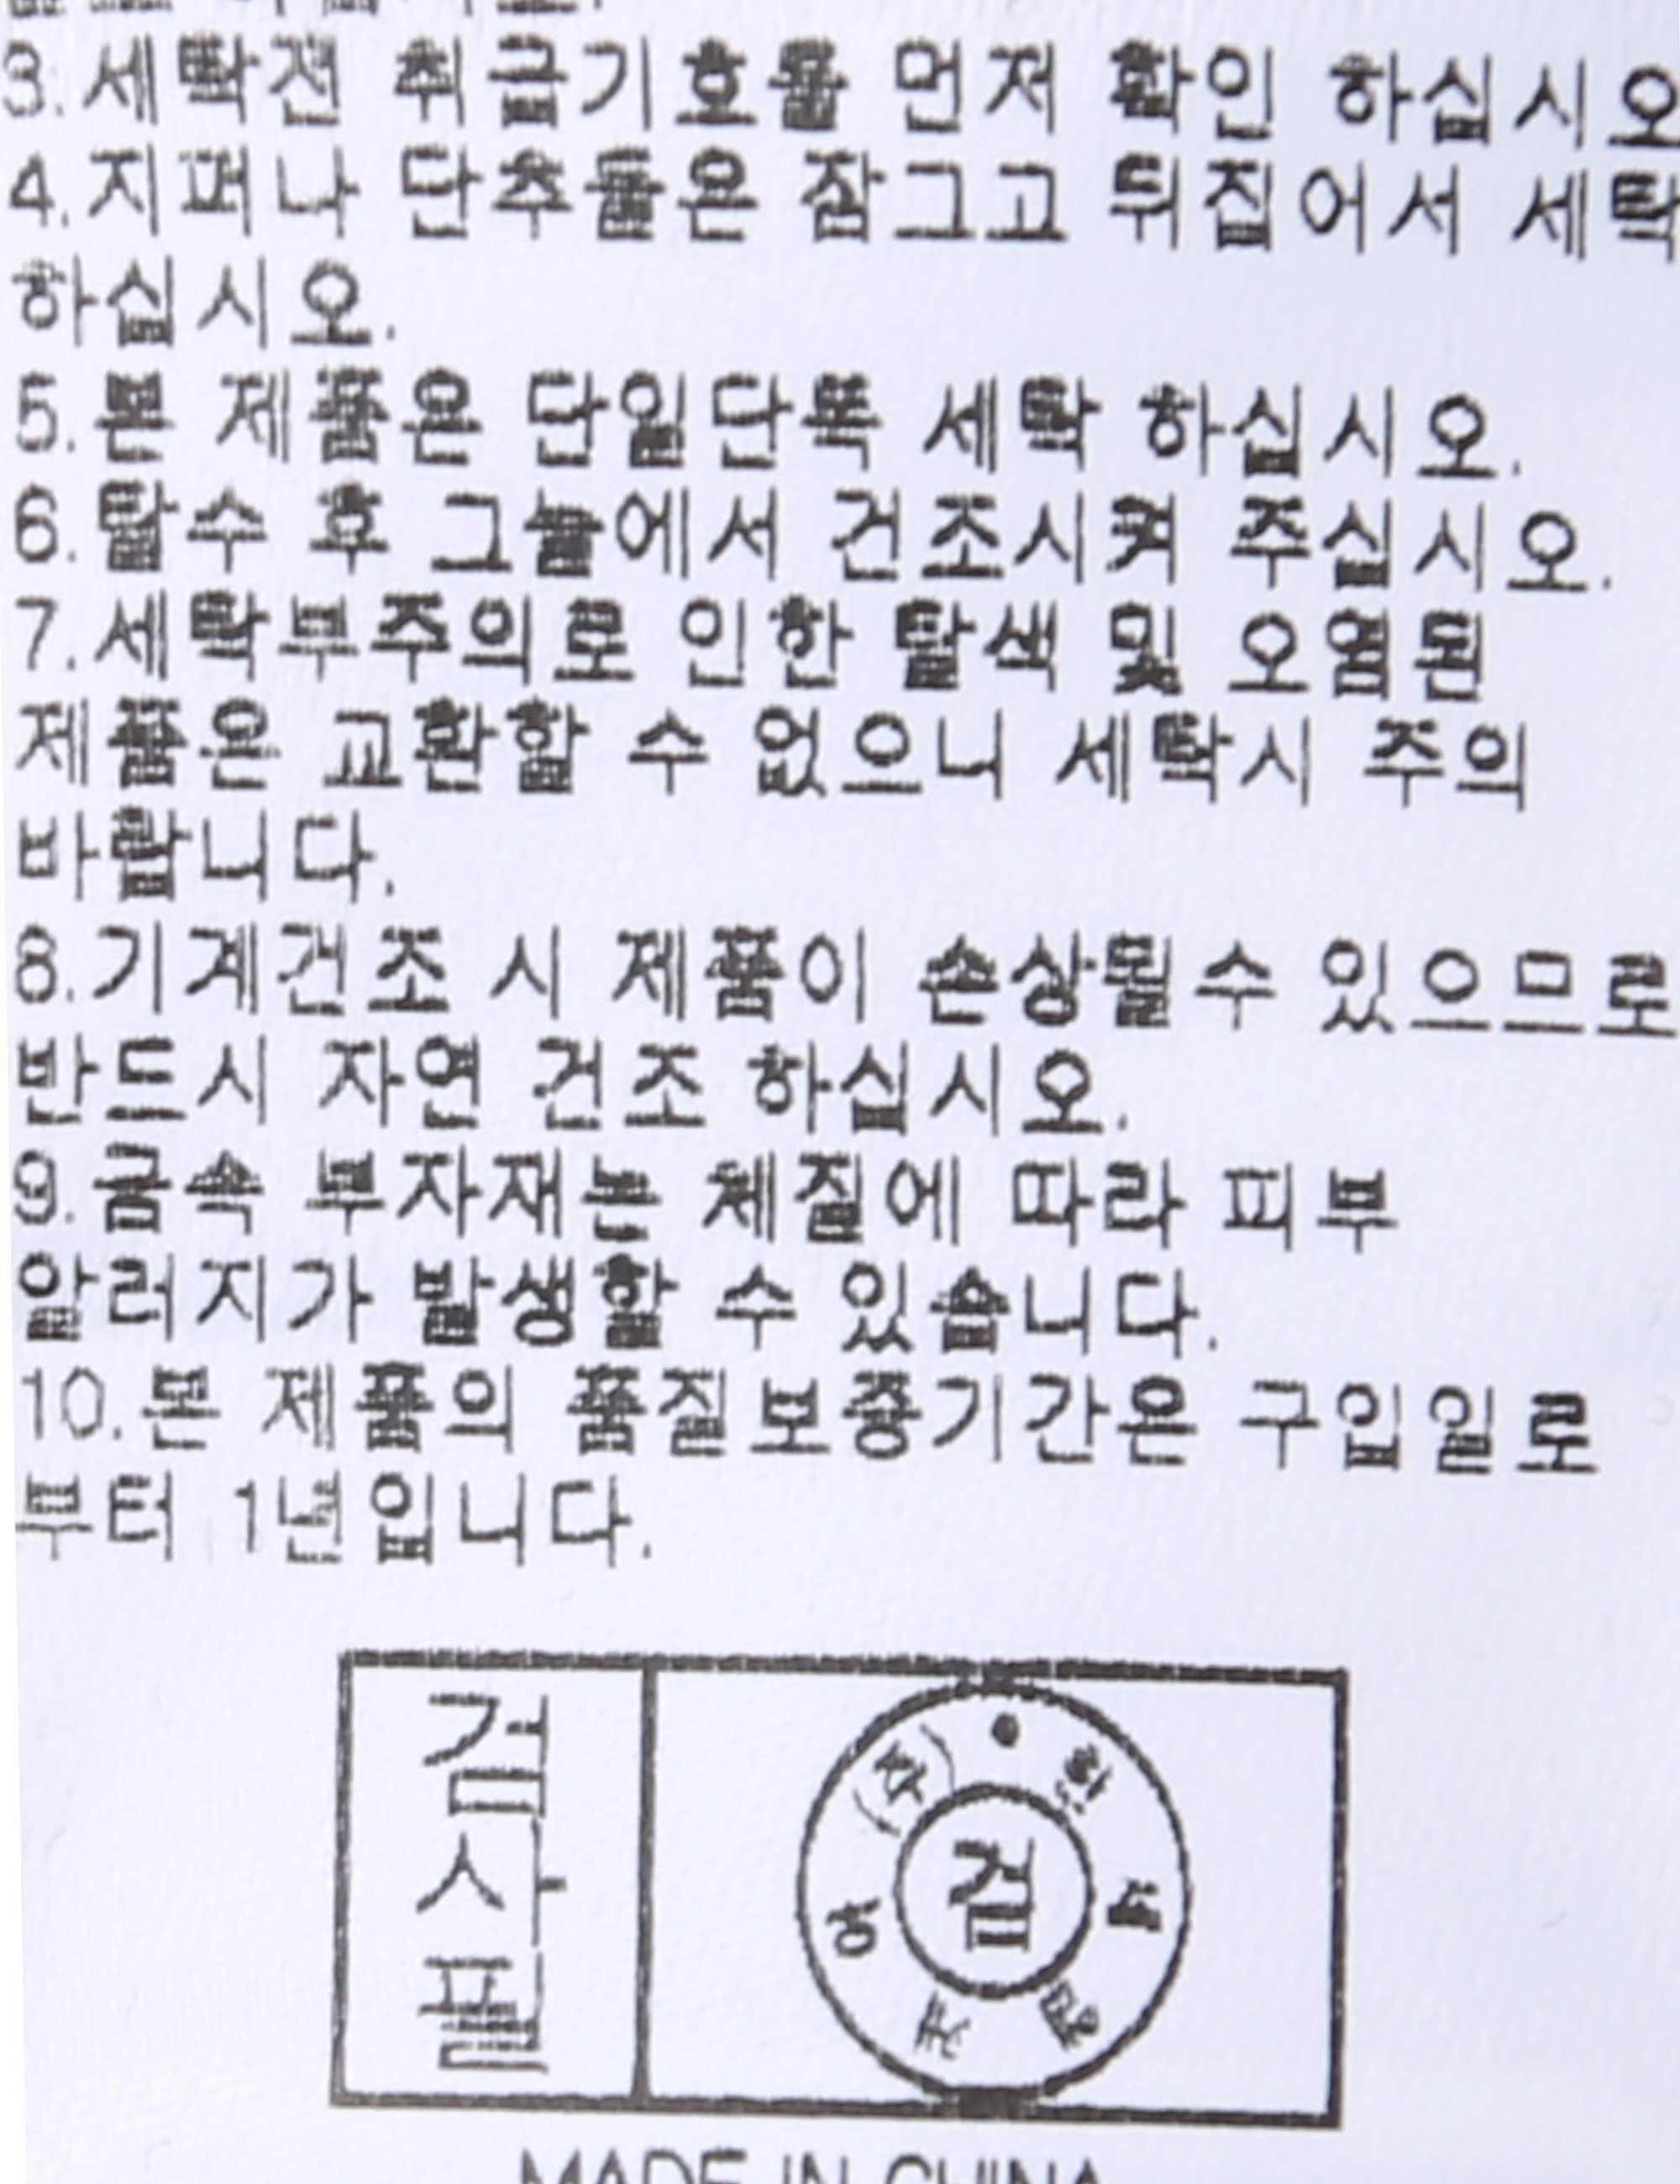 3.세탁전 취급기호를 먼저 확인 하십시오
4.지퍼나 단추들은 잠그고 뒤집어서 세탁
하십시오.
5.본 제품은 단일단독 세탁 하십시오.
6.탈수 후 그늘에서 건조시켜 주십시오.
7.세탁부주의로 인한 탈색 및 오염된
제품은 교환할 수 없으니 세탁시 주의
바랍니다.
8.기계건조 시 제품이 손상될수 있으므로
반드시 자연 건조 하십시오.
9.금속 부자재는 체질에 따라 피부
알러지가 발생할 수 있습니다.
10.본 제품의 품질보증기간은 구입일로
부터 1년입니다.
검사필
검
MADE IN CHINA